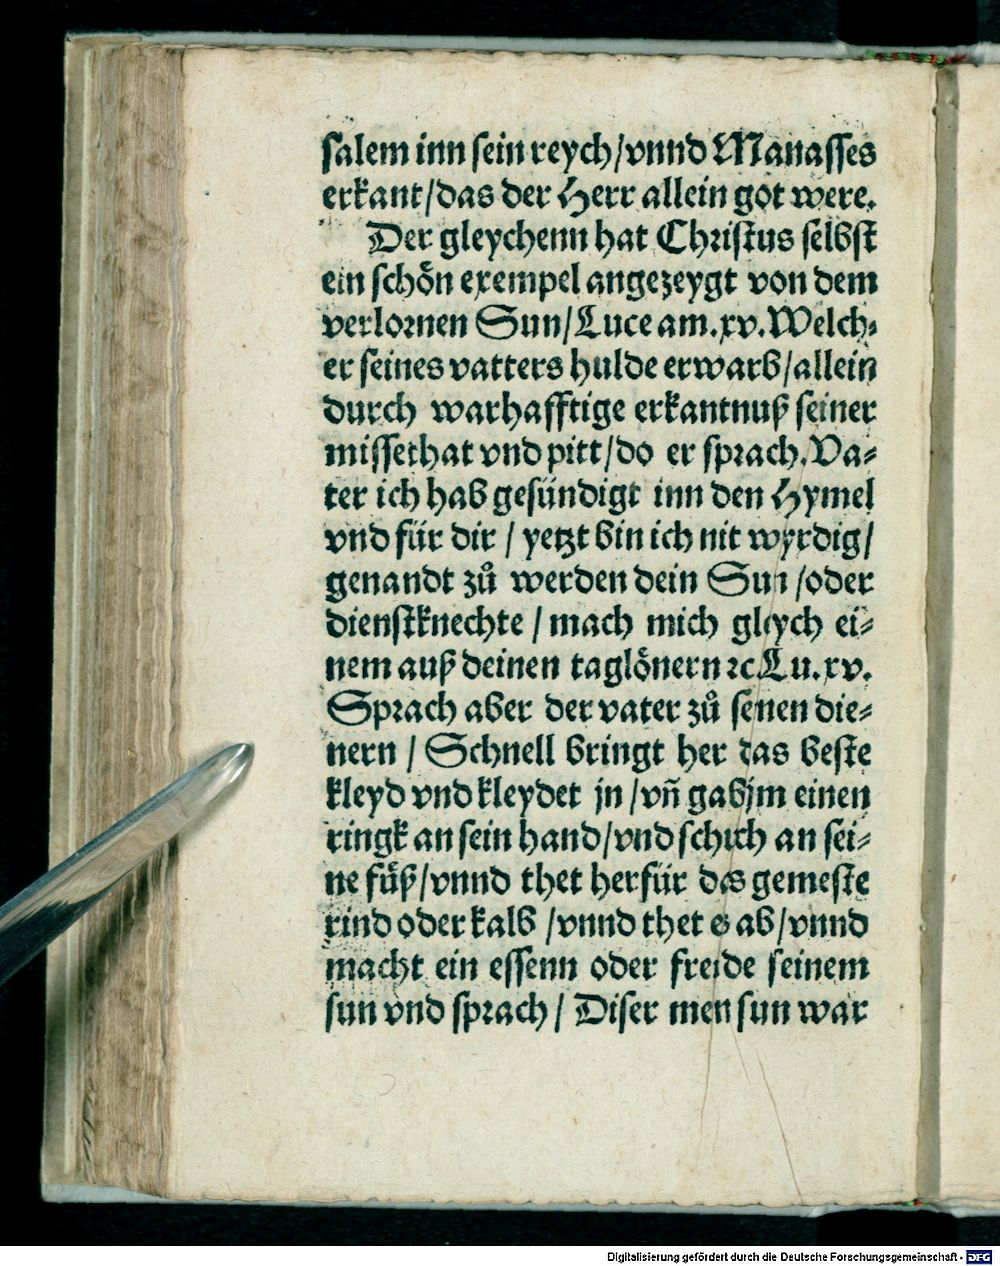 salem inn sein reych/vnnd Manasses
erkant/das der Herr allein got were.
Der gleychenn hat Christus selbst
ein schön exempel angezeygt von dem
verlornen Sun/Luce am.xv.Welch⸗
er seines vatters hulde erwarb/allein
durch warhafftige erkantnuß seiner
missethat vnd pitt/do er sprach.Va⸗
ter ich hab gesündigt inn den Hymel
vnd für dir / yetzt bin ich nit wyrdig/
genandt zů werden dein Sun /oder
dienstknechte / mach mich gleych ei⸗
nem auß deinen taglönern ⁊c.Lu.xv.
Sprach aber der vater zů senen die⸗
nern / Schnell bringt her das beste
kleyd vnd kleydet jn /vñ gab jm einen
ringk an sein hand/vnd schuch an sei⸗
ne füß/vnnd thet herfür das gemeste
rind oder kalb /vnnd thet es ab/vnnd
macht ein essenn oder freide seinem
sun vnd sprach / Diser mein sun war
Digitalisierung gefördert durch die Deutsche Forschungsgemeinschaft - DFG